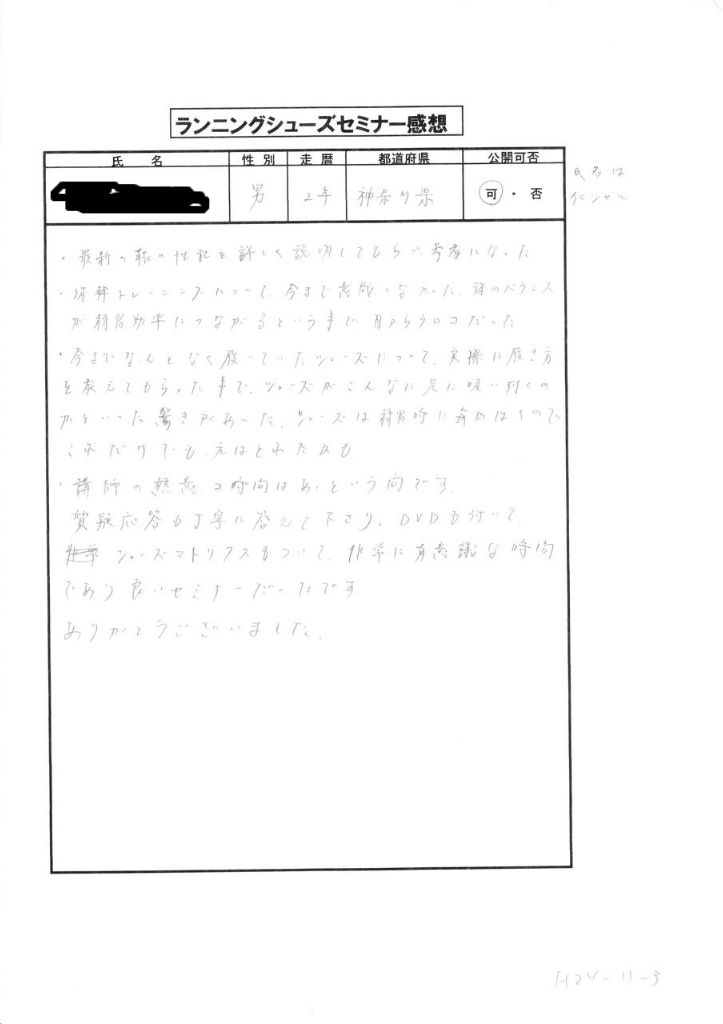 ランニングシューズセミナー感想
氏 名 性別 走暦 都道府県 公開可否
男 2年 神奈川県 可・否
氏名は
イニシャル
・最新の靴の性能を詳しく説明してもらい参考になった。
・体幹トレーニングについて、今まで意識しなかった、体のバランス
が 効率につながるという事で、目からウロコだった
・今までなんとなく履いていたシューズについて、実際に履き方
を教えてもらった事で、シューズがこんなに足に吸い付くの
かといった驚きがあった。シューズは 時に ので、
これだけでも、元はとれたかも
・講師の熱意 2時間はあっという間です。
質疑応答も丁寧に答えて下さり、DVDも付いて、
シューズマトリクスもついて、非常に有意義な時間
であり良いセミナーだったです。
ありがとうございました。
H24-11-3